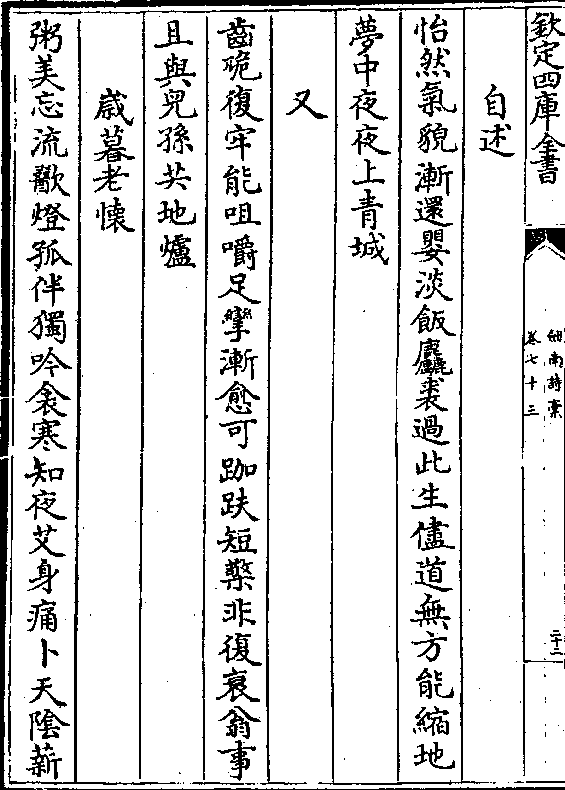 欽定四庫全書
劒南詩槀
卷七十三
二十二
自述
怡然氣貌漸還嬰淡飯麤裘過此生儘道無方能縮地
夢中夜夜上青城
又
齒脆復牢能咀嚼足攣漸愈可跏趺短檠非復衰翁事
且與兒孫共地爐
歲暮老懷
粥美忘流歠燈孤伴獨吟衾寒知夜艾身痛卜天陰薪